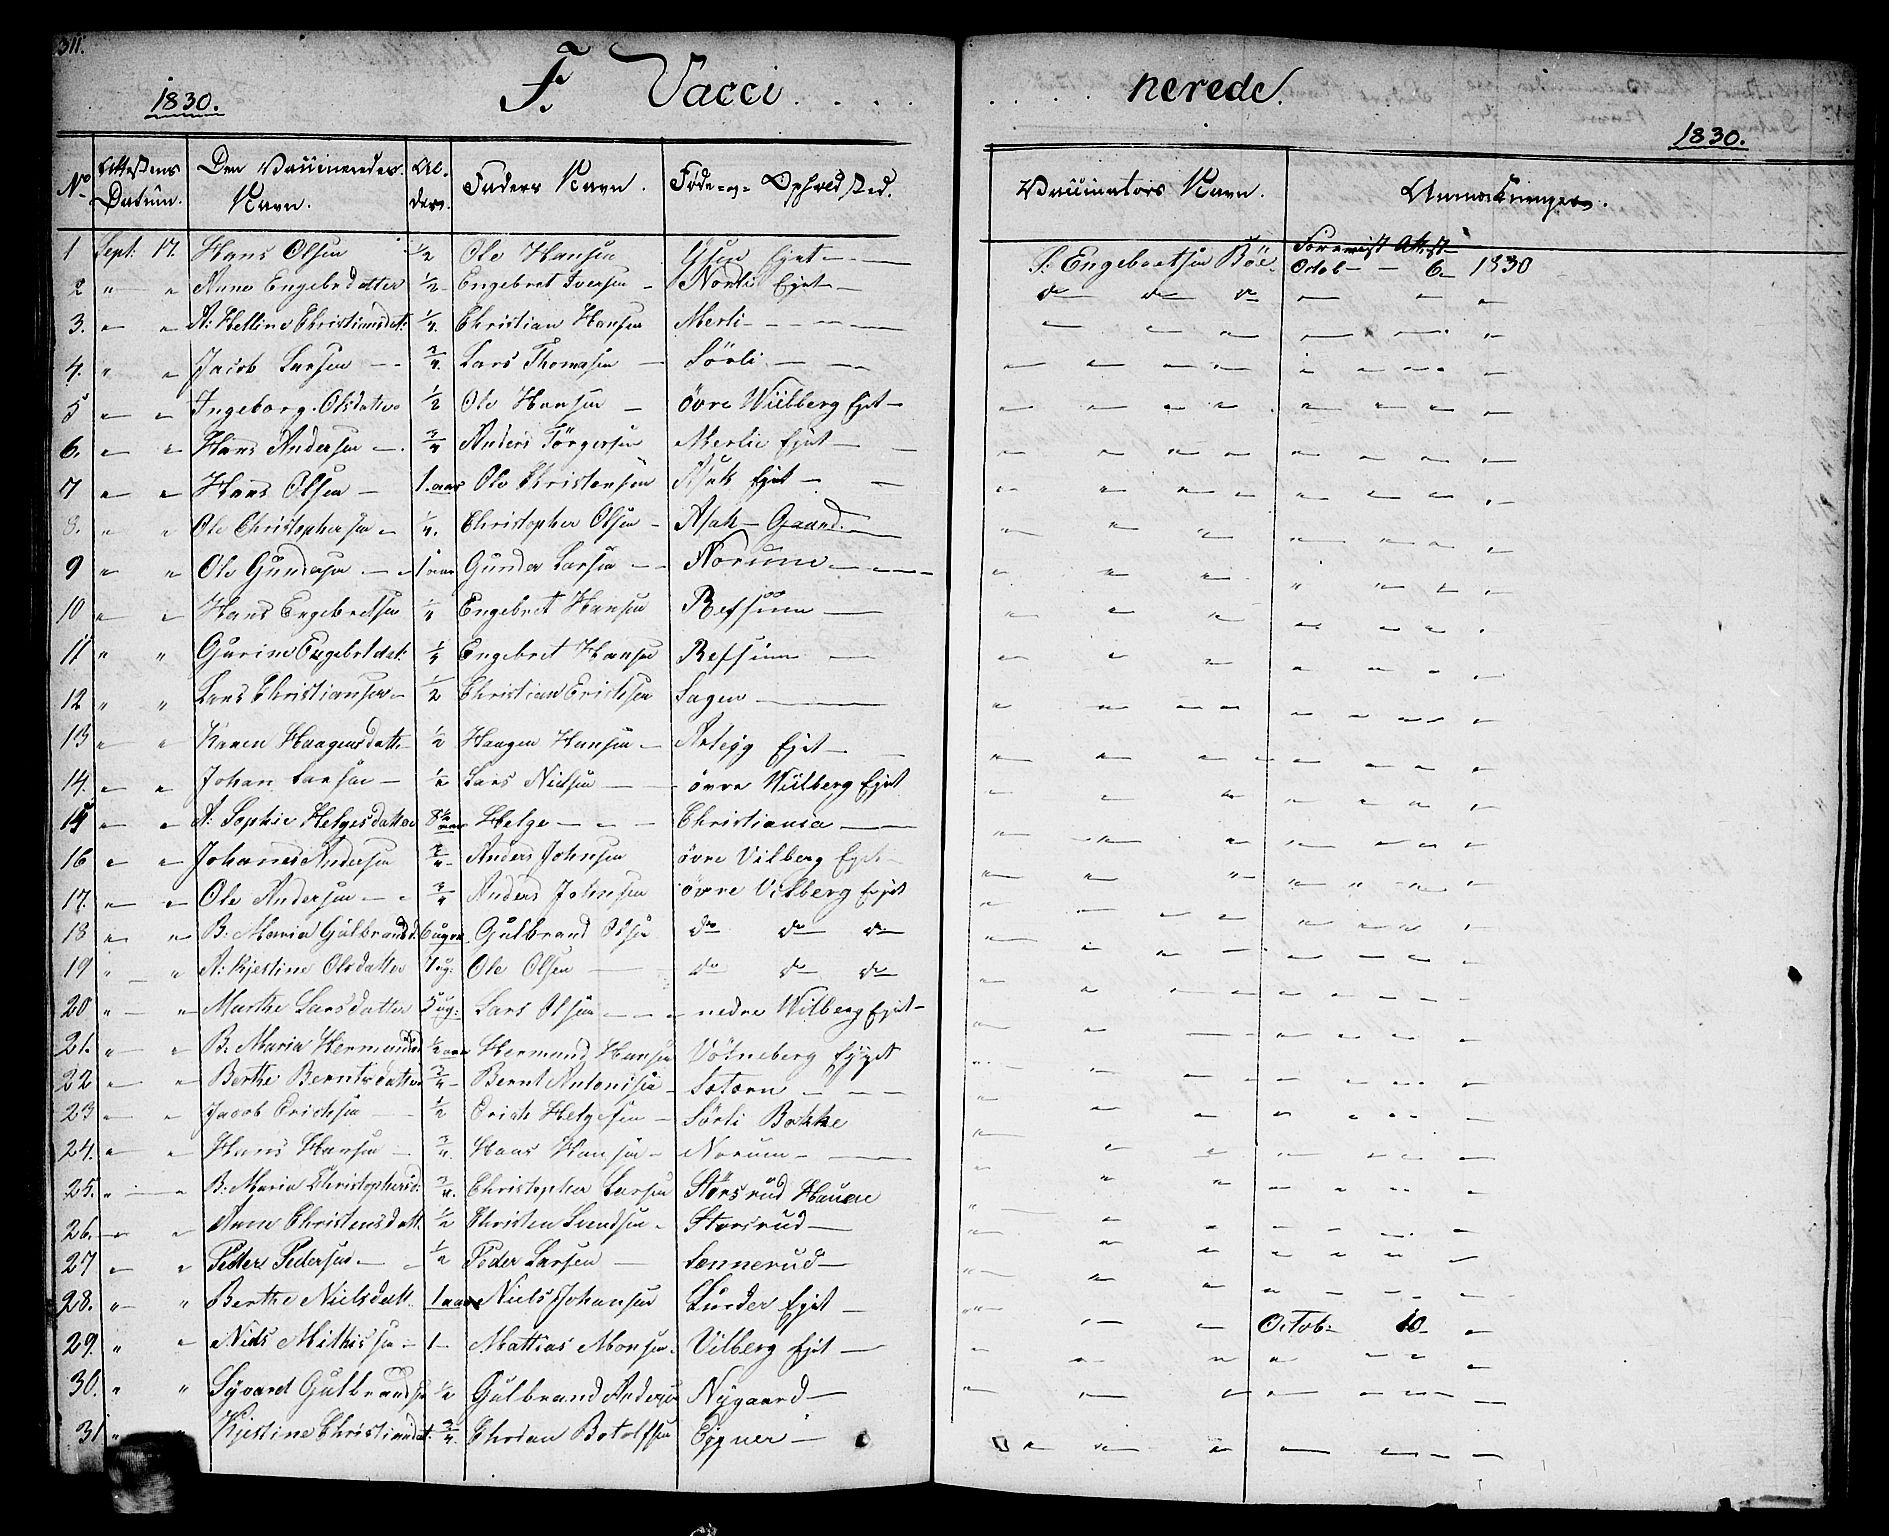 311.
1830. F. Vacci . . . . . . . . nerede. 1830.
No Attestens Datum. Den Vaccineredes Navn. Alder. Faders Navn. Føde- og Opholdsted. Vaccinators Navn. Anmærkninger.
1 Sept: 17. Hans Olsen 1/2 Ole Hansen Ejet S: Engebretsen Böe Forevist Att: Octob 6 1830
2 " " Anne Engebrdatter 1/2 Engebret Iversen Nordli Ejet do do do
3. " " A: Helline Christiansdat: 1/4 Christian Hansen Merli
4. " " Jacob Larsen 3/4 Lars Thomasen Sörli
5 " " Ingeborg Olsdatter 1/2 Ole Hansen övre Wilberg Ejet
6. " " Hans Andersen 3/4 Anders Törgersen Merlie Ejet
7 " " Hans Olsen 1. aar Ole Christensen Asak Ejet
8. " " Ole Christophersen 1/4. Christopher Olsen Asak Gaard.
9 " " Ole Gundersen 1 aar Gunder Larsen Norum
10 " " Hans Engebretsen 1/4 Engebret Hansen Refsum
11 " " Gurine Engebrtdat: 1/4 Engebret Hansen Refsum
12 " " Lars Christiansen 1/2 Christian Ericksen Sagen
13 " " Karen Haagensdatte 1/2 Haagen Hansen Ejet
14. " " Johan Larsen 1/2 Lars Nielsen övre Wilberg Ejet
15 " " A: Sophie Helgesdatter 8 aar Helge Christiania
16 " " Johanes Andersen 3/4 Anders Johnsen övre Vilberg Ejet
17. " " Ole Andersen 3/4 Anders Johnsen övre Vilberg Ejet
18 " " B: Maria Gulbrandsd: 6 uger Gulbrand Olsen do do do
19 " " A: Kjestine Olsdatter 7 ug: Ole Olsen do do do
20 " " Marthe Larsdatter 5 ug: Lars Olsen nedre Wilberg Ejet
21. " " B: Maria Hermandsd 1/2 aar Hermand Hansen Vötneberg Ejet
22 " " Berthe Berntsdatter 3/4 Bernt Antonisen
23 " " Jacob Ericksen 1/2 Erick Helgesen Sörli Bakke
24. " " Hans Hansen 3/4. Hans Hansen Norum
25. " " B: Maria Christophersd: 3/4. Christopher Larsen Störsrud Hauen
26. " " Anne Christensdatt. 1/2 Christen Svendsen Storsrud
27 " " Peder Pedersen 1/2 Peder Larsen Sonnerud
28. " " Berthe Nielsdatt. 1 aar Niels Johansen Lurder Ejet
29. " " Niels Mathissen 1 Mattias Monsen Vilberg Ejet Octob: 10
30. " " Syvard Gulbrandsen 1/2 Gulbrand Andersen Nygaard
31 " " Kjestine Christiansdat. 3/4. Botolfsen